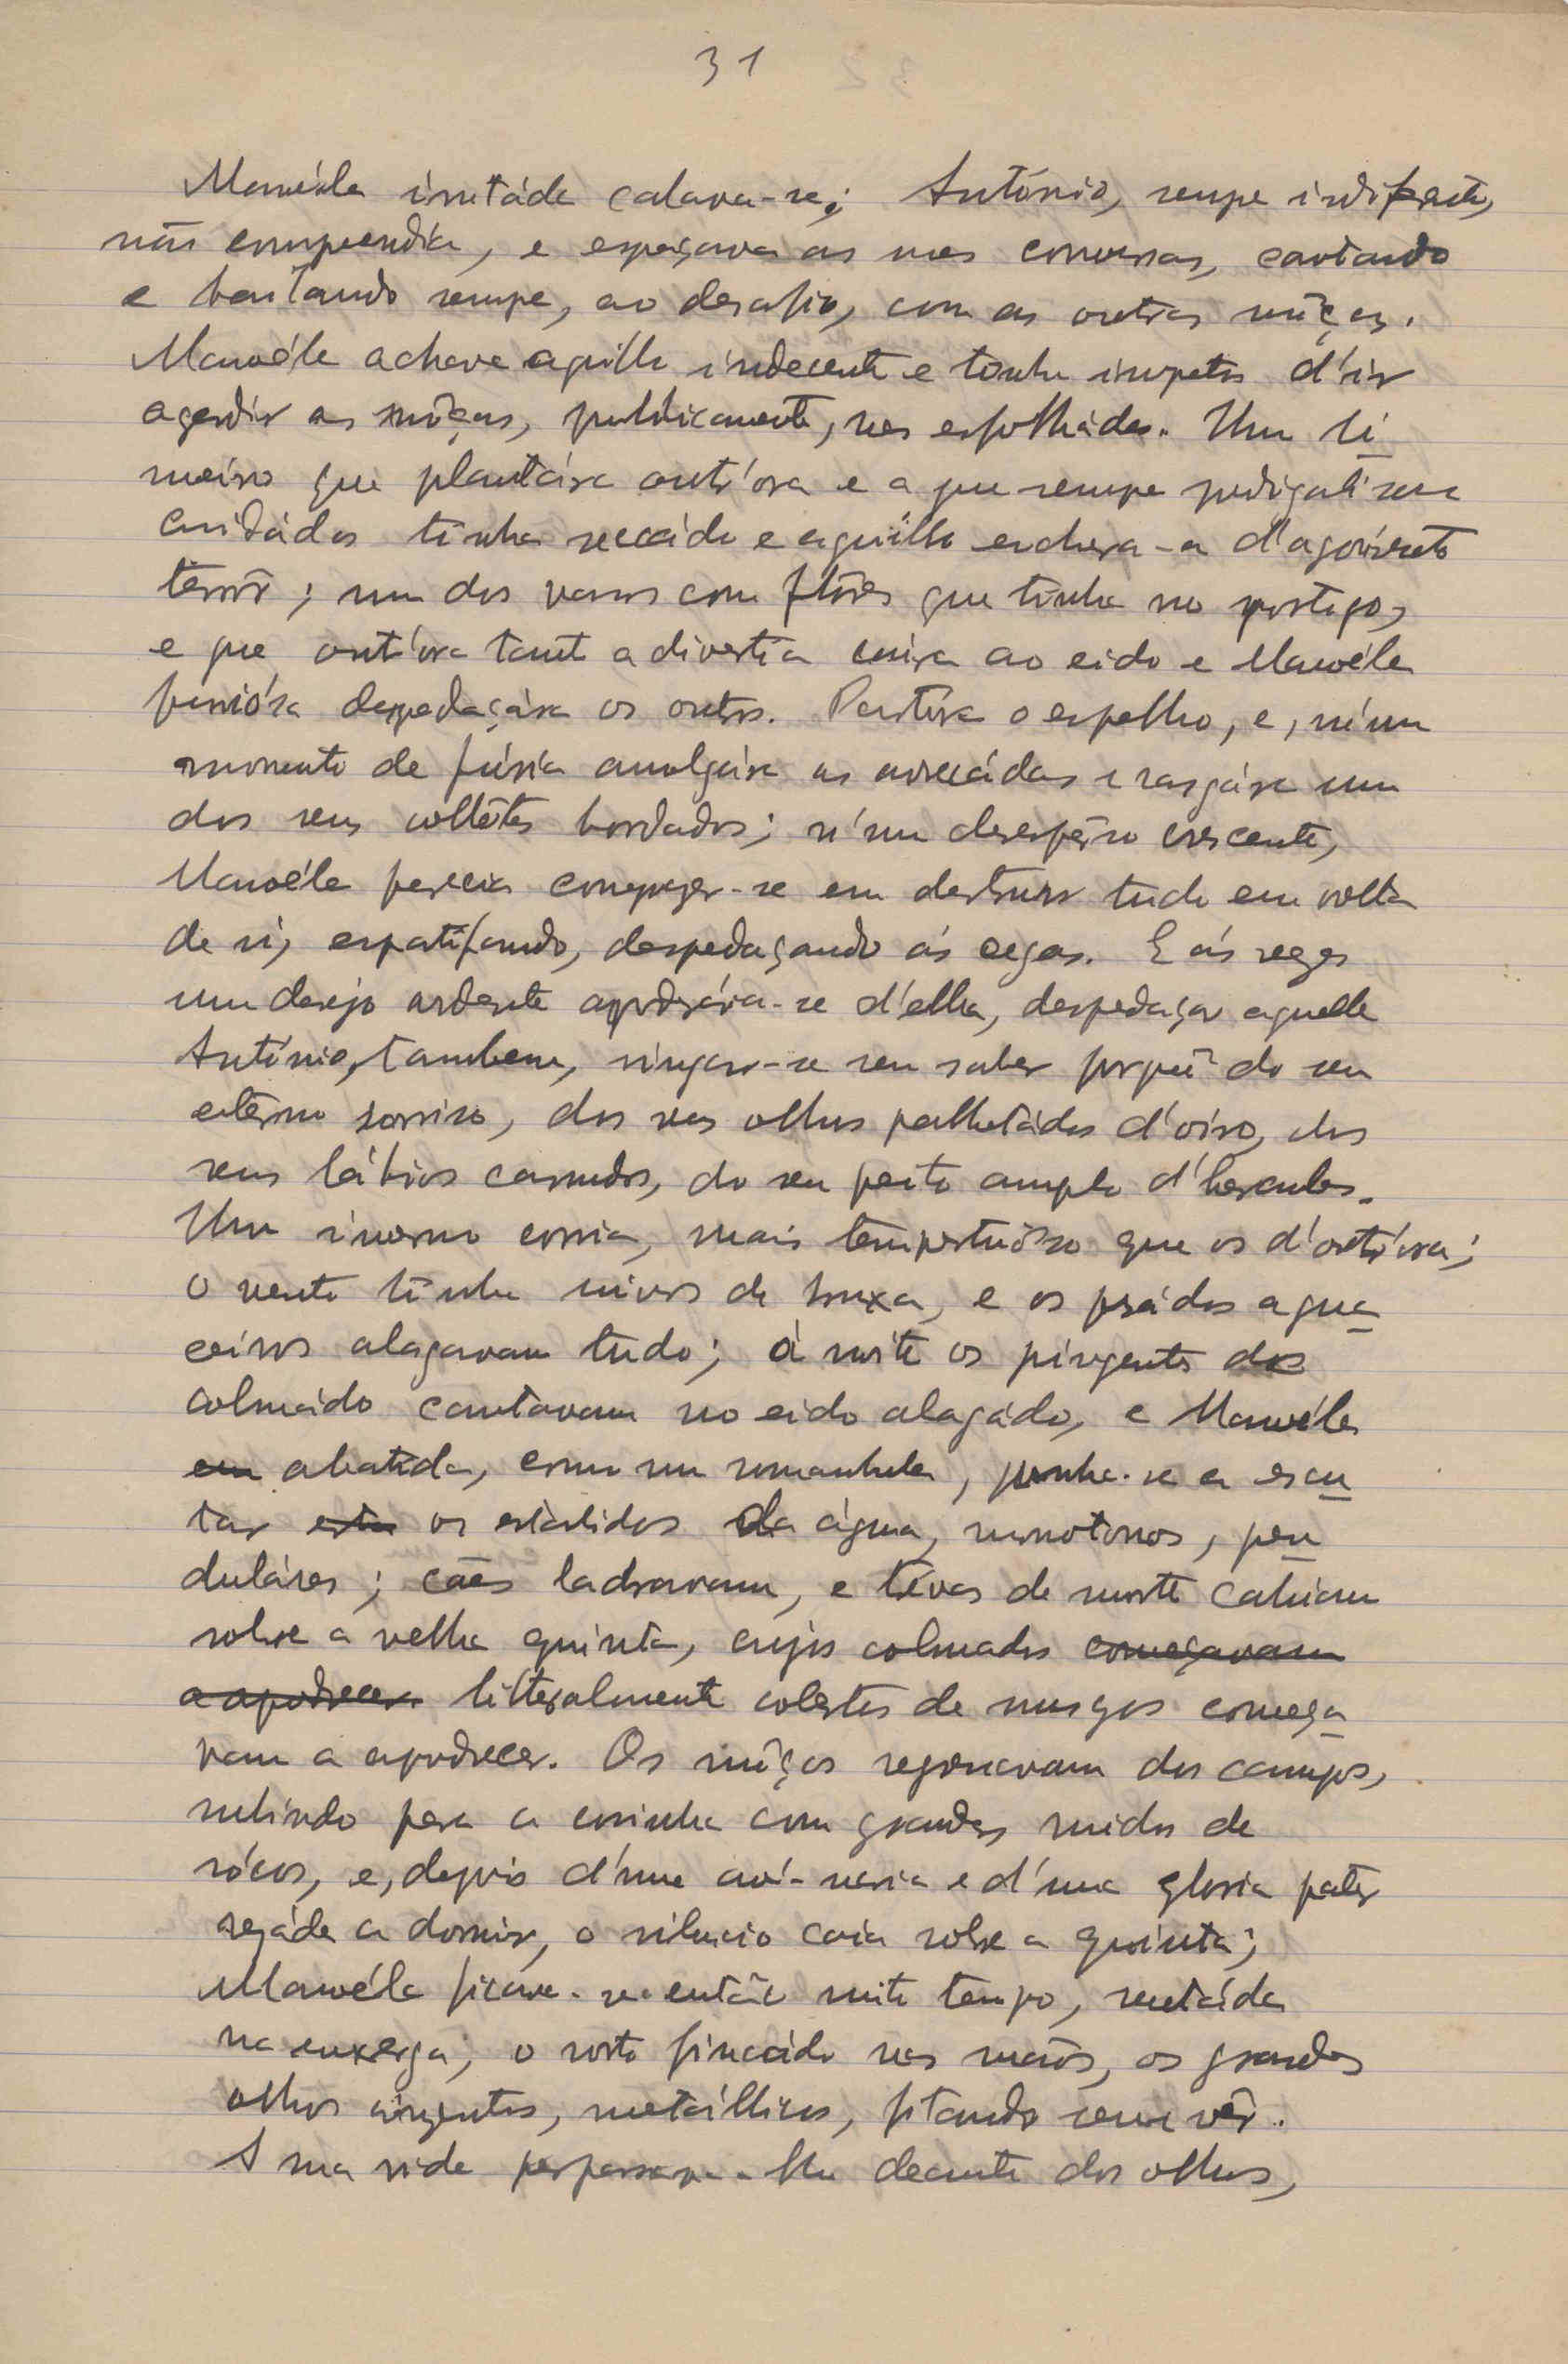 31
Manoéla irritáda calava-se; António, sempe indifrente,
não comprendia, e espaçava as suas conversas, cantando
e bailando sempe, ao desafio, com as outras môças.
Manoéla achava aquillo indecente e tinha impetos d'ir
agredir as môças, publicamente, nas esfolhádas. Um li
meiro que plantára outr'ora e a que sempe prodigalisara
cuidádos tinha seccádo e aquillo enchera-a d'agoirento
terrôr; um dos vasos com flôres que tinha no postigo,
e que outr'ora tanto a divertia caira ao eido e Manoéla
furiósa despedaçára os outros. Partira o espelho, e, n'um
momento de fúria amolgára as arrecádas e rasgára um
dos seus collêtes bordados; n'um desespêro crescente,
Manoéla parecia comprazer-se em destruir tudo em volta
de si, espatifando, despedaçando ás cegas. E ás vezes
um desejo ardente apoderáva-se d'ella, despedaçar aquelle
António, tambem, vingar-se sem saber porquê do seu
etêrno sorriso, dos seus olhos palhetádos d'oiro, dos
seus lábios carnudos, do seu peito amplo d'hercules.
Um inverno corria, mais tempestuôso que os d'outr'ora;
o vento tinha uivos de bruxa, e os pesádos agua
ceiros alagavam tudo; á noite os pingentes dos
colmádo cantavam no eido alagádo, e Manoéla
em abatida, como um somanbula, punha-se a escu
tar esta os estalidos da água, monotonos, pen
duláres; cães ladravam, e trevas de morte cahiam
sobre a velha quinta, cujos colmados começavam
a apodrecer litteralmente cobertos de musgos começa
vam a apodrecer. Os môços regressavam dos campos,
subindo para a cosinha com grandes ruidos de
sócos, e, depois d'uma avé-maria e d'uma gloria pater
rezáda a dormir, o silencio caia sobre a quinta;
Manoéla ficava-se então muito tempo, sentáda
na enxerga; o rosto fincádo nas mãos, os grandes
olhos cinzentos, metállicos, fitando sem vêr.
A sua vida perpassava-lhe deante dos olhos,